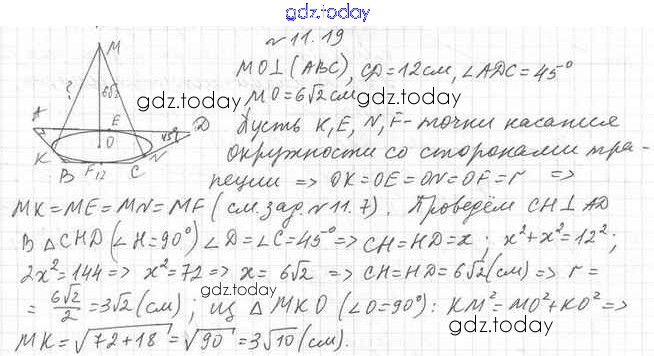 gdz.today
№11.19
MO⊥(ABC), CD=12см, ∠ADC=45°
MO=6√2см gdz.today
Пусть K, E, N, F - точки касания
окружности со сторонами тра-
пеции => OK=OE=ON=OF=r =>
M
?
6√2
gdz.today
A
E
D
45°
O
K
B
F
12
C
N
MK=ME=MN=MF (см. зад. №11.7). Проведём CH⊥AD
В △CHD (∠H=90°) ∠D=∠C=45° => CH=HD=x; x²+x²=12²;
2x²=144 => x²=72 => x=6√2 => CH=HD=6√2(см) => r=
= 6√2/2 =3√2(см); из △MKO (∠O=90°): KM²=MO²+KO² =>
gdz.today
MK=√72+18=√90=3√10(см).
gdz.today